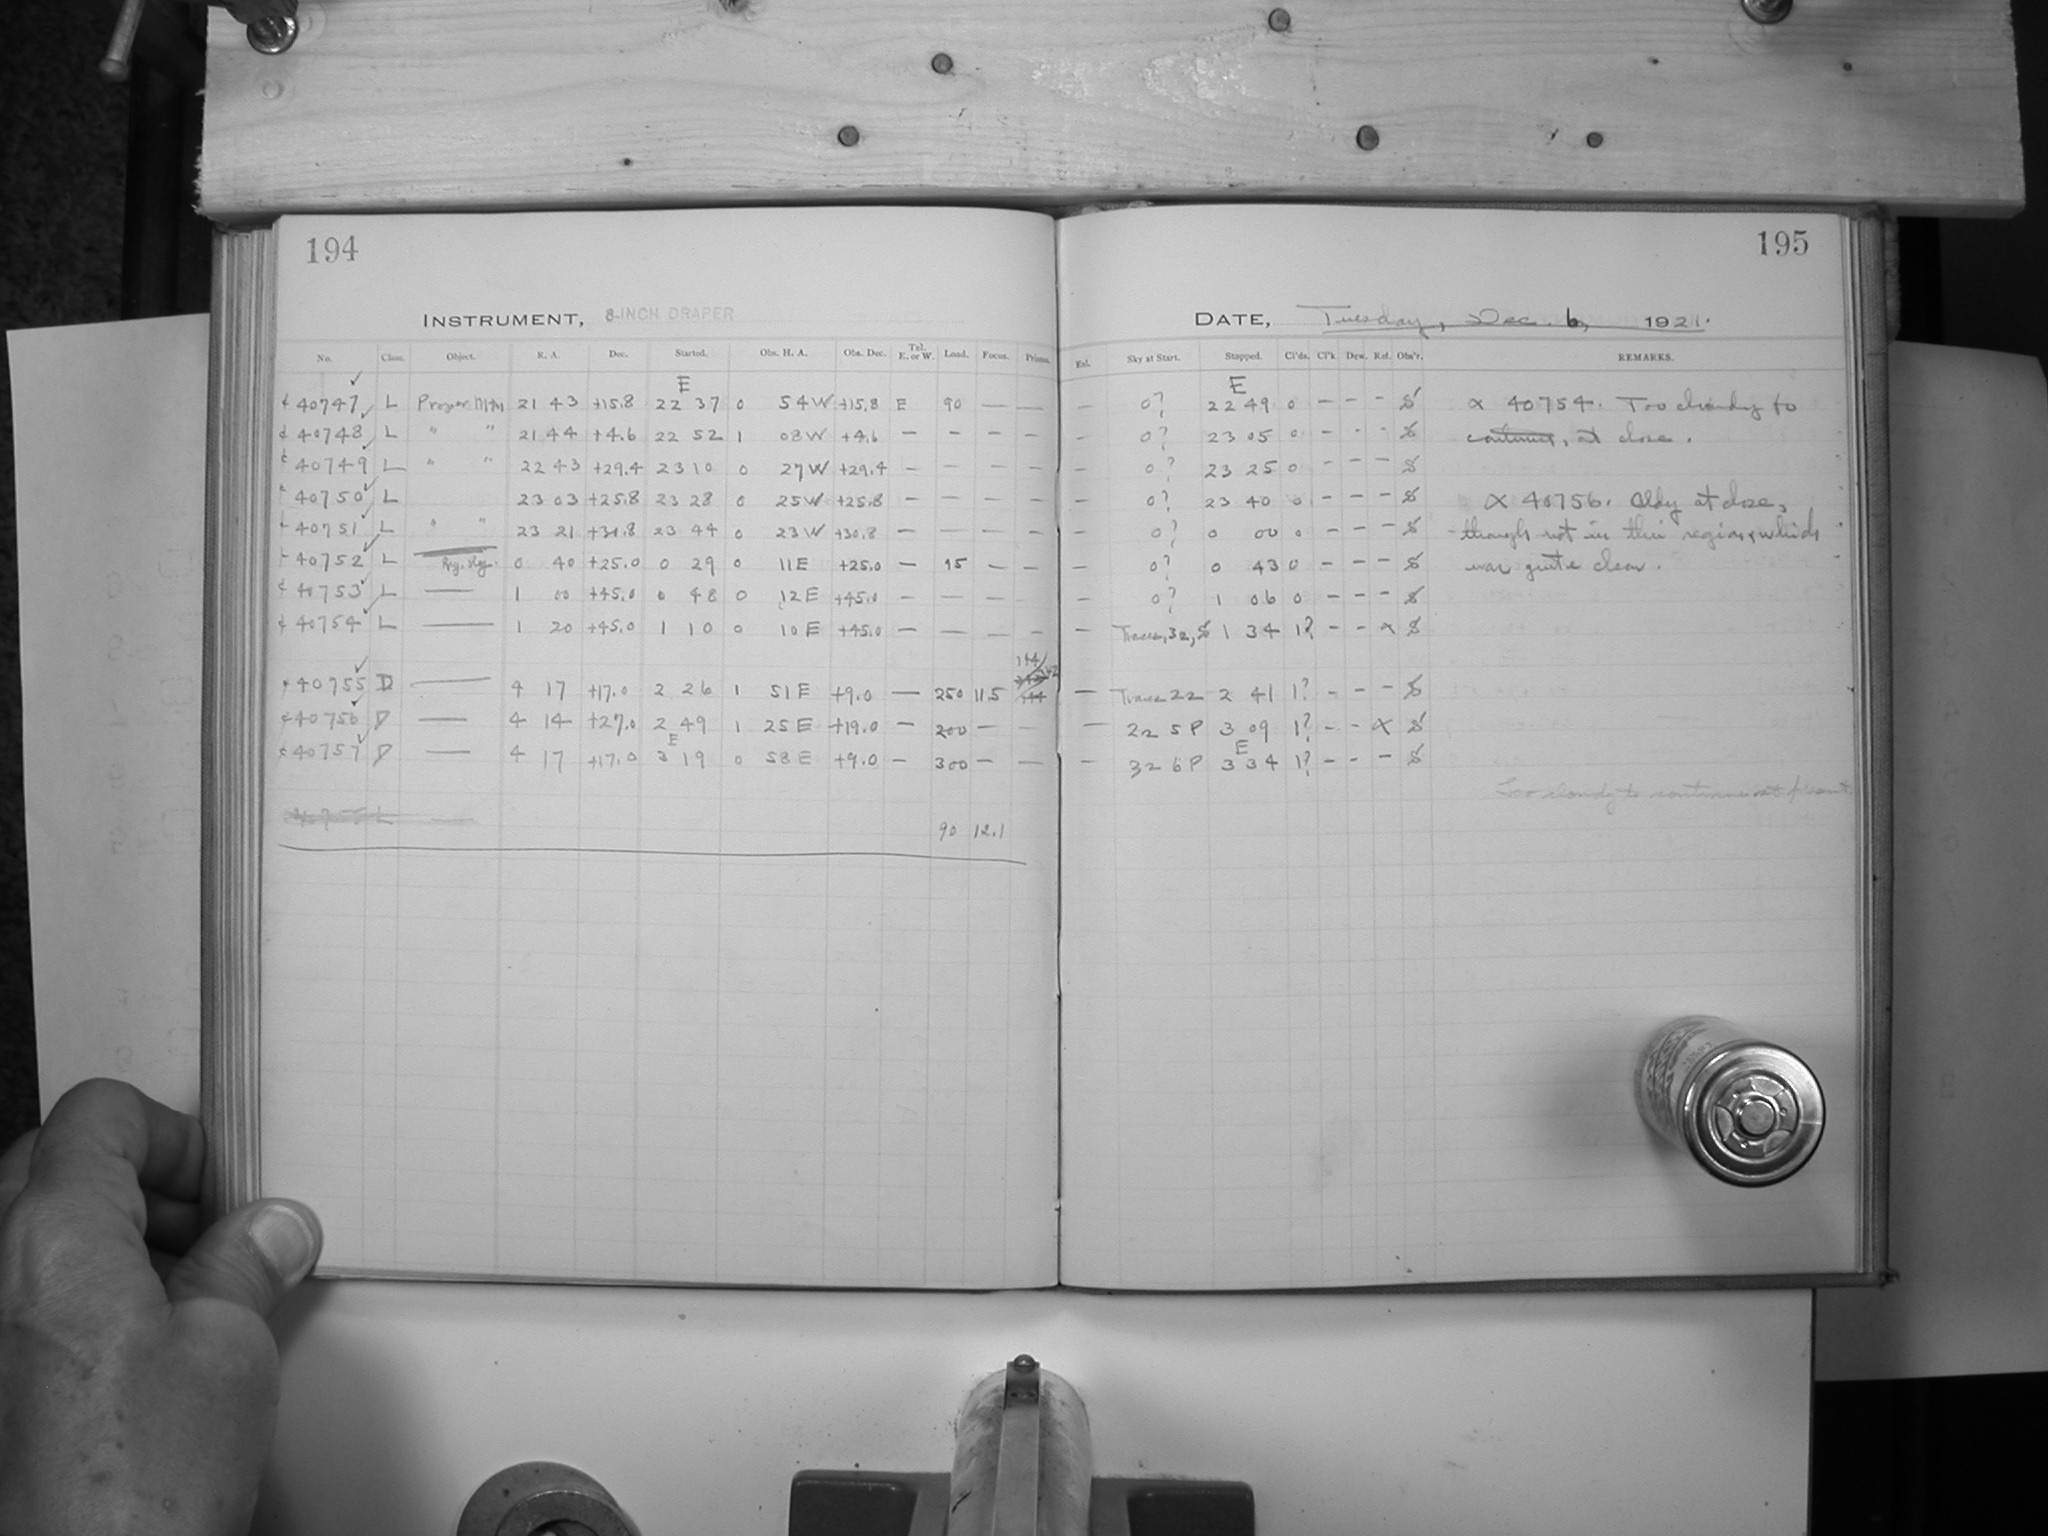 194
INSTRUMENT, 8-INCH DRAPER
No. Class. Object. R. A. Dec. Started. Obs. H. A. Obs. Dec. Tel. E. or W. Load. Focus. Prisms.
E
40747 L Proper Mtn 21 43 +15.8 22 37 0 54 W +15.8 E 90 — —
40748 L " " 21 44 +4.6 22 52 1 08 W +4.6 — — — —
40749 L " " 22 43 +29.4 23 10 0 27 W +29.4 — — — —
40750 L 23 03 +25.8 23 28 0 25 W +25.8 — — — —
40751 L " " 23 21 +30.8 23 44 0 23 W +30.8 — — — —
40752 L 0 40 +25.0 0 29 0 11 E +25.0 — 15 — —
40753 L — 1 00 +45.0 0 48 0 12 E +45.0 — — — —
40754 L — 1 20 +45.0 1 10 0 10 E +45.0 — — — —
144
40755 D — 4 17 +17.0 2 26 1 51 E +9.0 — 250 11.5
40756 D — 4 14 +27.0 2 49 1 25 E +19.0 — 200 — —
E
40757 D — 4 17 +17.0 3 19 0 58 E +9.0 — 300 — —
90 12.1
195
DATE, Tuesday, Dec. 6, 1921.
Exl. Sky at Start. Stopped. Cl'ds. Cl'k Dew. Ref. Obs'r. REMARKS.
E
— 0? 22 49 0 — — — S α 40754. Too cloudy to
— 0? 23 05 0 — — — S continue, at close.
— 0? 23 25 0 — — — S
— 0? 23 40 0 — — — S α 40756. Cldy at close,
— 0? 0 00 0 — — — S though not in this region, which
— 0? 0 43 0 — — — S was quite clear.
— 0? 1 06 0 — — — S
— Traces, 32, 1 34 1? — — α S
— Trace 22 2 41 1? — — — S
— 22 5P 3 09 1? — — α S
E
— 32 6P 3 34 1? — — — S
Too cloudy to continue at present